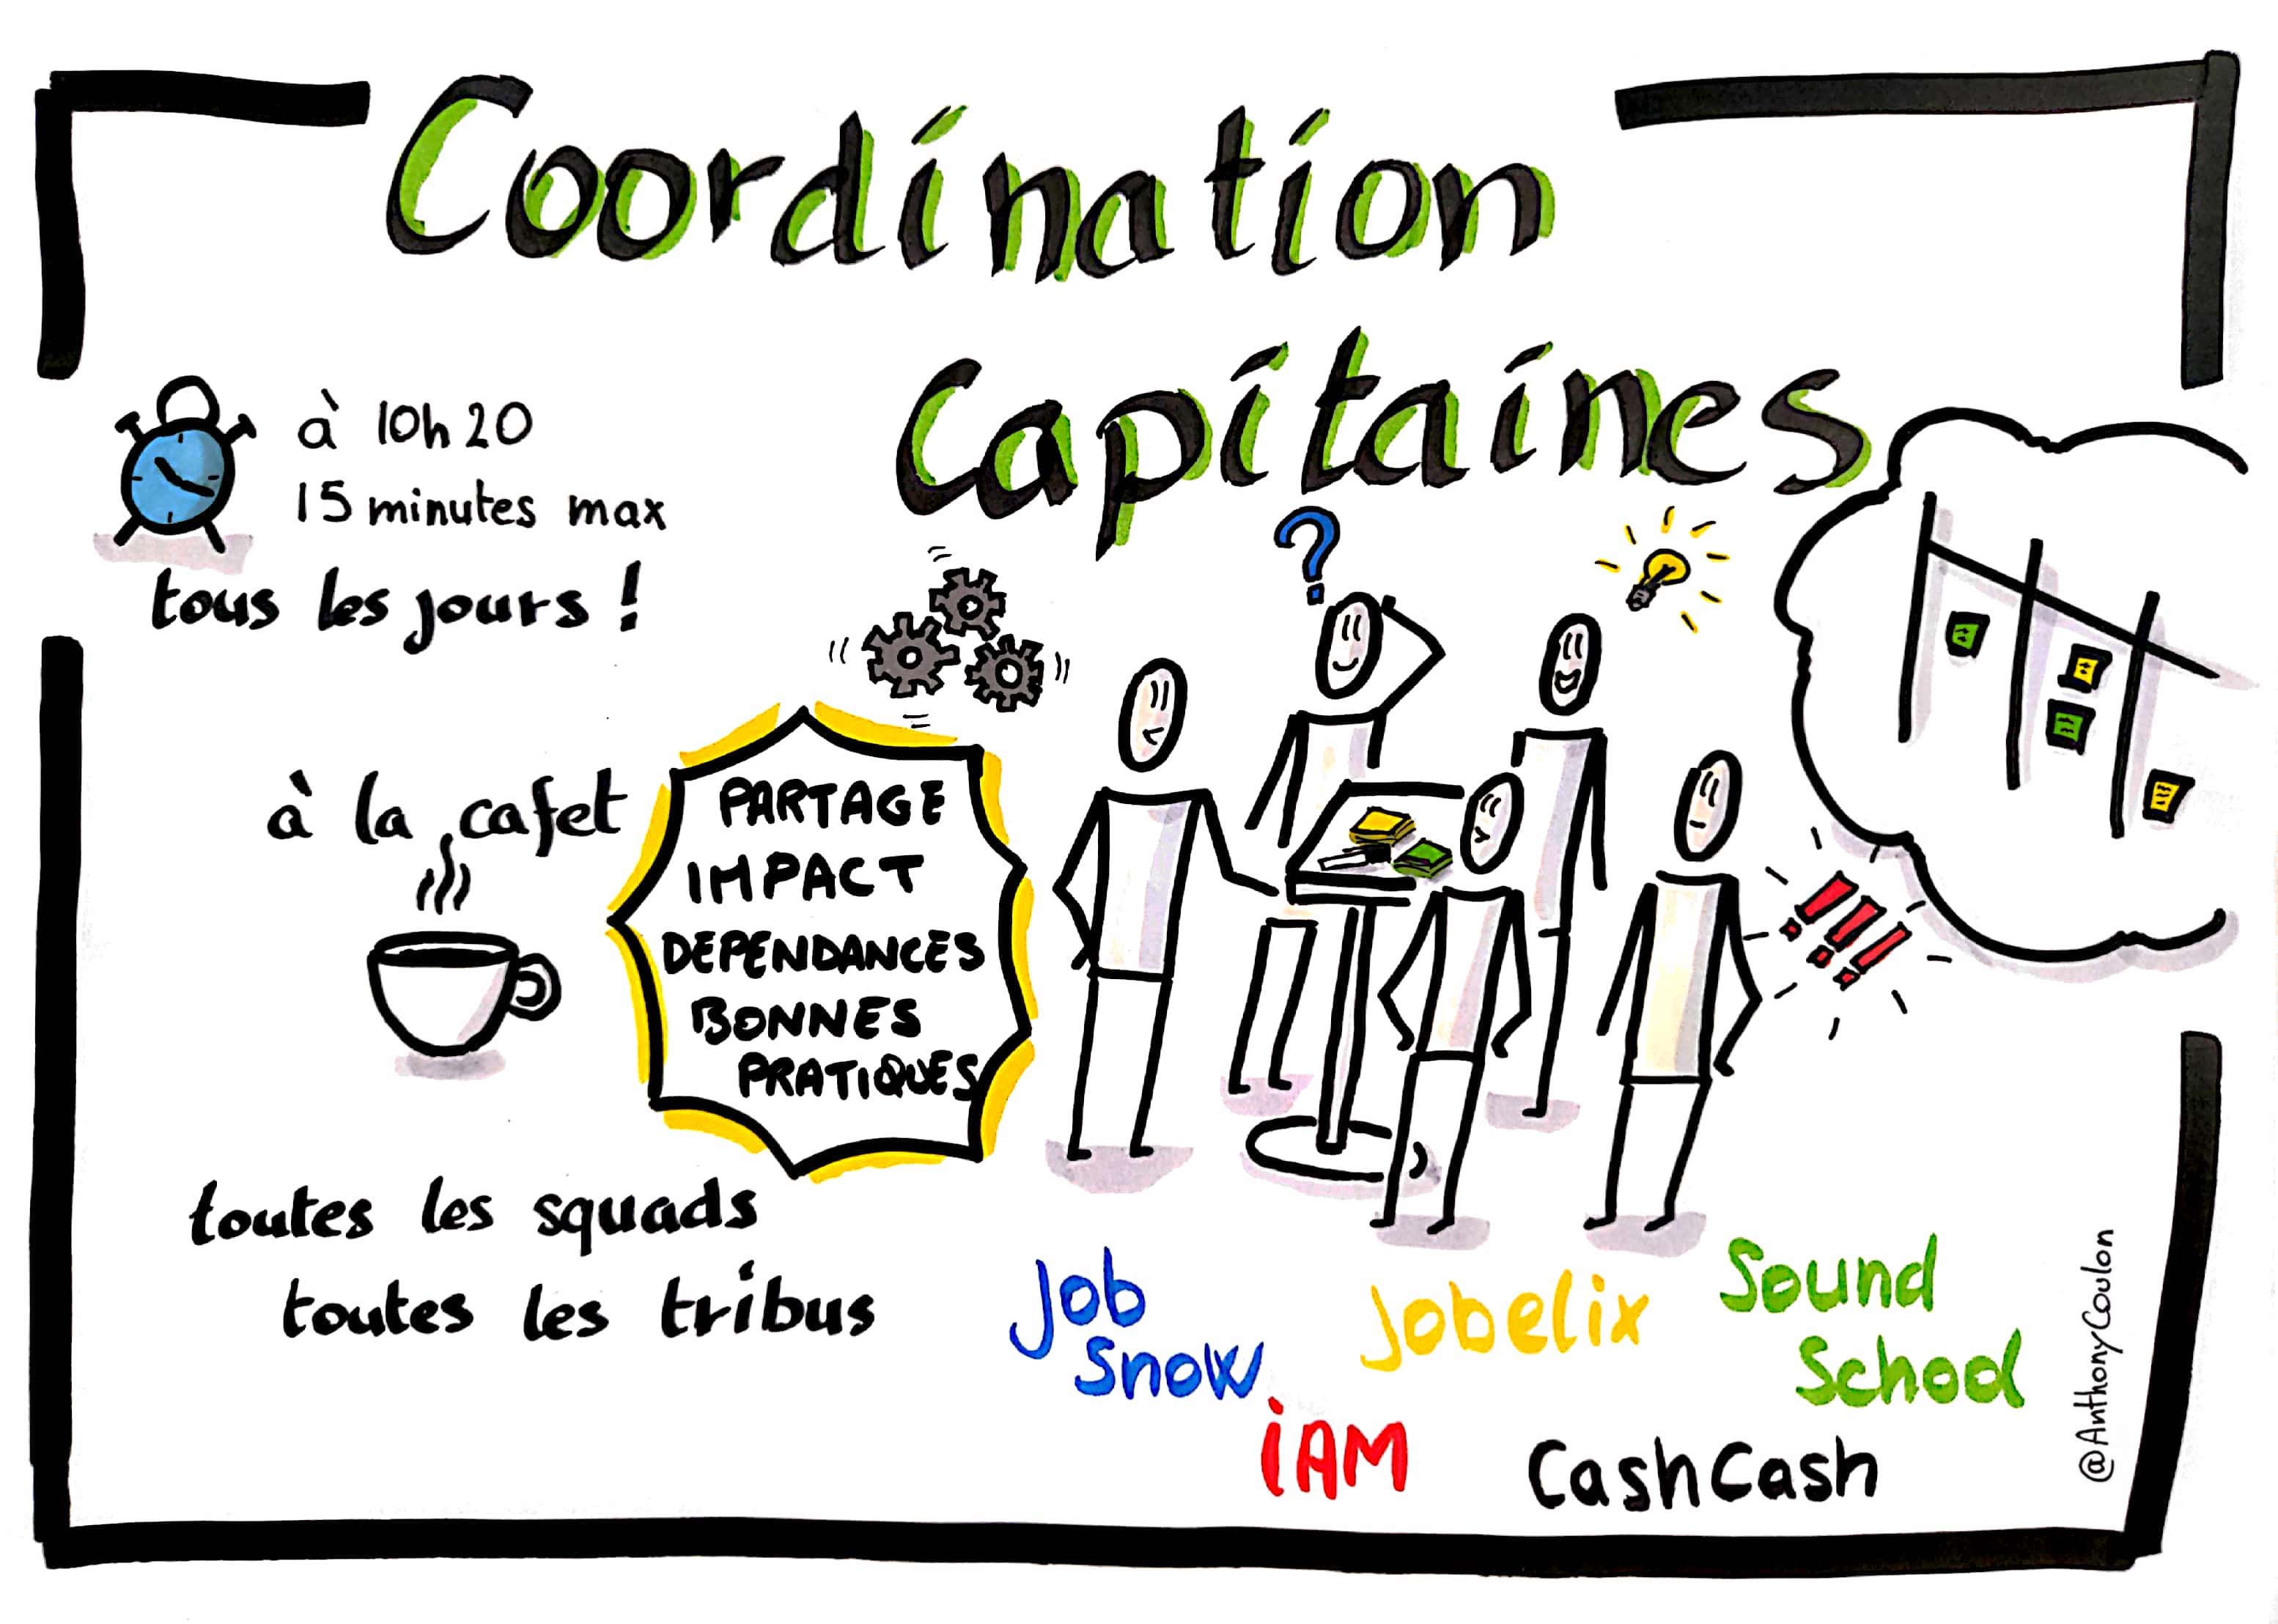 Coordination
Capitaines
à 10h20
15 minutes max
tous les jours !
à la cafet
PARTAGE
IMPACT
DEPENDANCES
BONNES
PRATIQUES
?
!!!
toutes les squads
toutes les tribus
Job
Snow
Jobelix
Sound
School
iAM
CashCash
@AnthonyCoulon